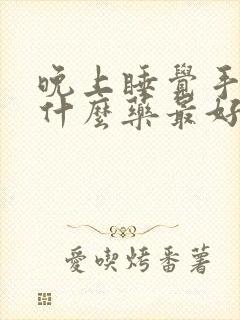 晚上睡覺手
什麼藥最好
愛喫烤番薯